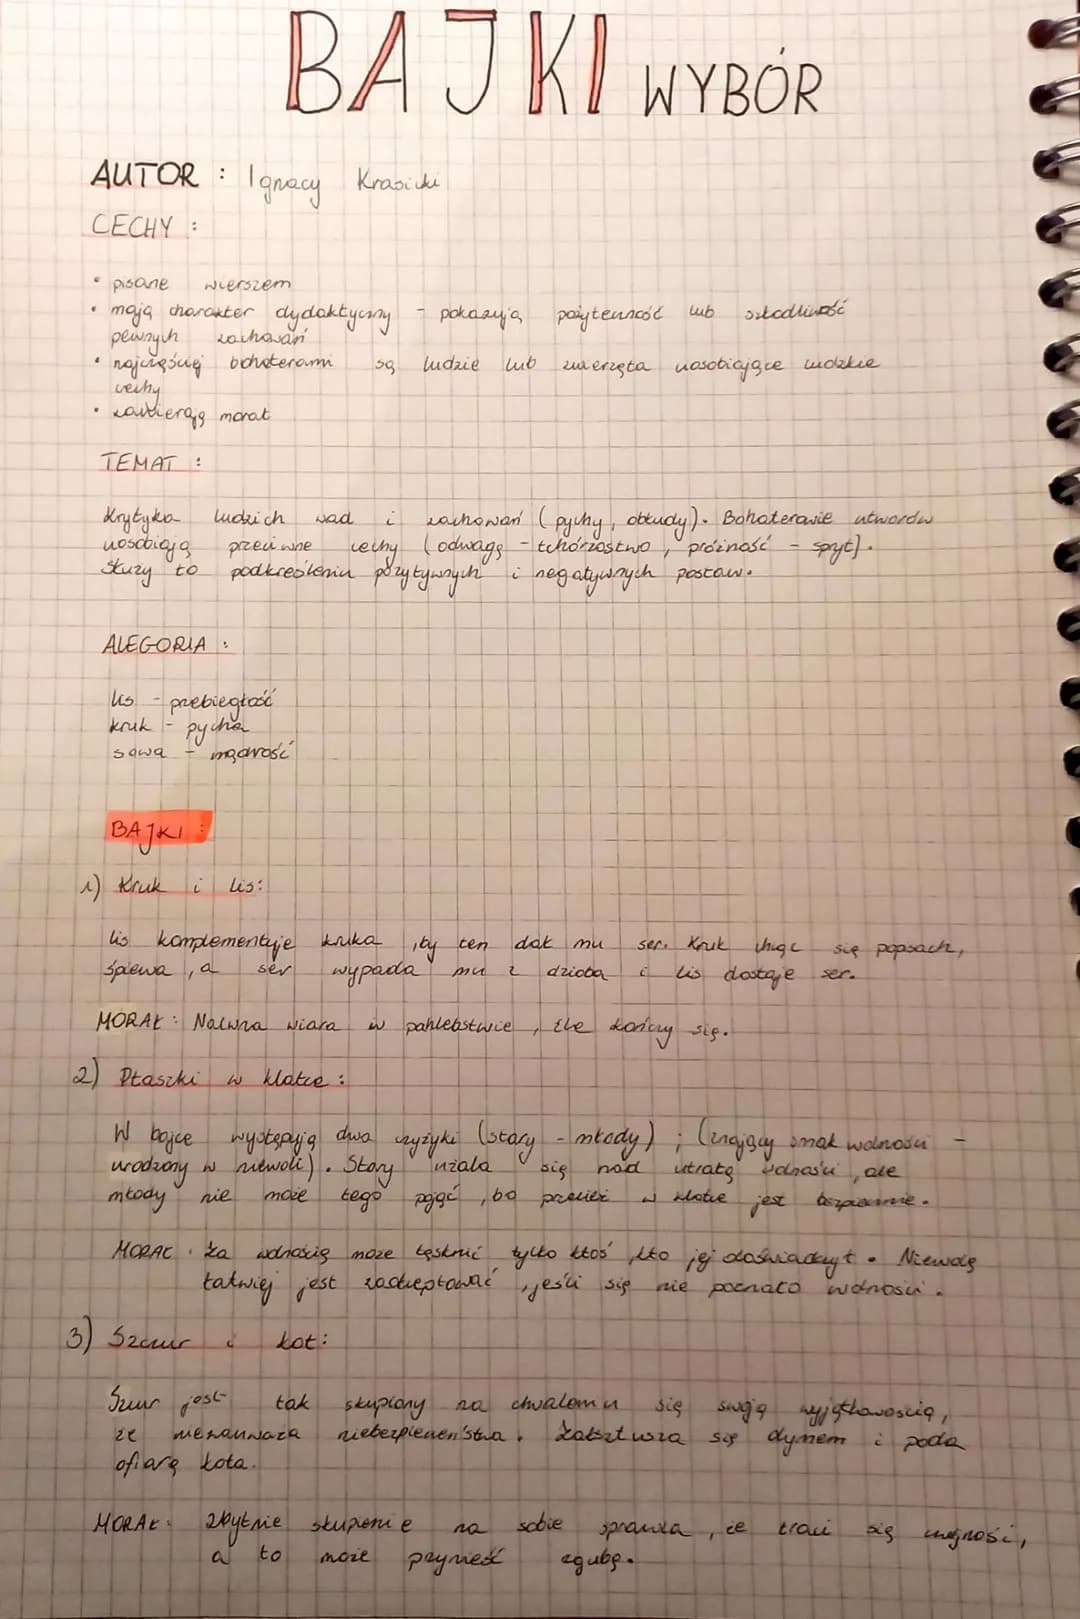 BAJKI WYBÓR
AUTOR : Ignacy Krasicki
CECHY :
• pisane wierszem
• mają charakter dydaktyczny - pokazują pożyteczność lub szkodliwość
pewnych zachowań
• najczęściej bohaterami są ludzie lub zwierzęta uosobiające ludzkie
cechy
• zawierają morał
TEMAT :
Krytyka ludzkich wad i zachowań (pychy, obłudy). Bohaterowie utworów
uosobiają przeciwne cechy (odwagę - tchórzostwo, próżność - spryt).
Służy to podkreśleniu pozytywnych i negatywnych postaw.
ALEGORIA :
lis - przebiegłość
kruk - pycha
sowa - mądrość
BAJKI :
1) Kruk i lis:
Lis komplementuje kruka, by ten dał mu ser. Kruk chcąc się popisać,
śpiewa, a ser wypada mu z dzioba i lis dostaje ser.
MORAŁ : Naiwna wiara w pohlebstwie, źle kończy się.
2) Ptaszki w klatce :
W bajce występują dwa czyżyki (stary - młody) ; (znający smak wolności -
urodzony w niewoli). Stary użala się nad utratą wolności, ale
młody nie może tego pojąć, bo przecież w klatce jest bezpiecznie.
MORAŁ : Za wolnością może tęsknić tylko ktoś, kto jej doświadczył. Niewolę
łatwiej jest zaakceptować, jeśli się nie poznało wolności.
3) Szczur i kot:
Szczur jest tak skupiony na chwaleniu się swoją wyjątkowością,
że niezauważa niebezpieczeństwa. Zaksztusza się dymem i pada
ofiarą kota.
MORAŁ : Zbytnie skupienie na sobie sprawia, że traci się czujność,
a to może przynieść zgubę.